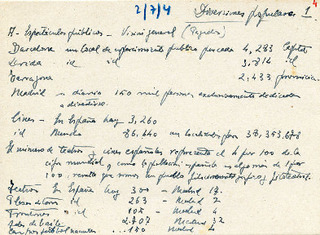 2/7/4
Diversiones populares. 1
4
A- Espectáculos públicos - Visión general (España)
Barcelona un local de esparcimiento público por cada 4,283 capital
Lérida id id 3,814 id
Tarragona 2,433 provincia.
Madrid - diario 150 mil personas exclusivamente dedicadas
a divertirse.
Cines - En España hay 3,260
id Mundo 86,440 un
El número de teatros y cines españoles representa el 4 por 100 de la
cifra mundial, y como la población española es algo más de 1 por
100, resulta que somos un pueblo
Teatros En España hay 300 - Madrid 19.
Plazas de toros Id 263 - Madrid 2
Frontones id 108 - Madrid 4
Salas de baile 2.707 - Madrid 32
150 Madrid 4